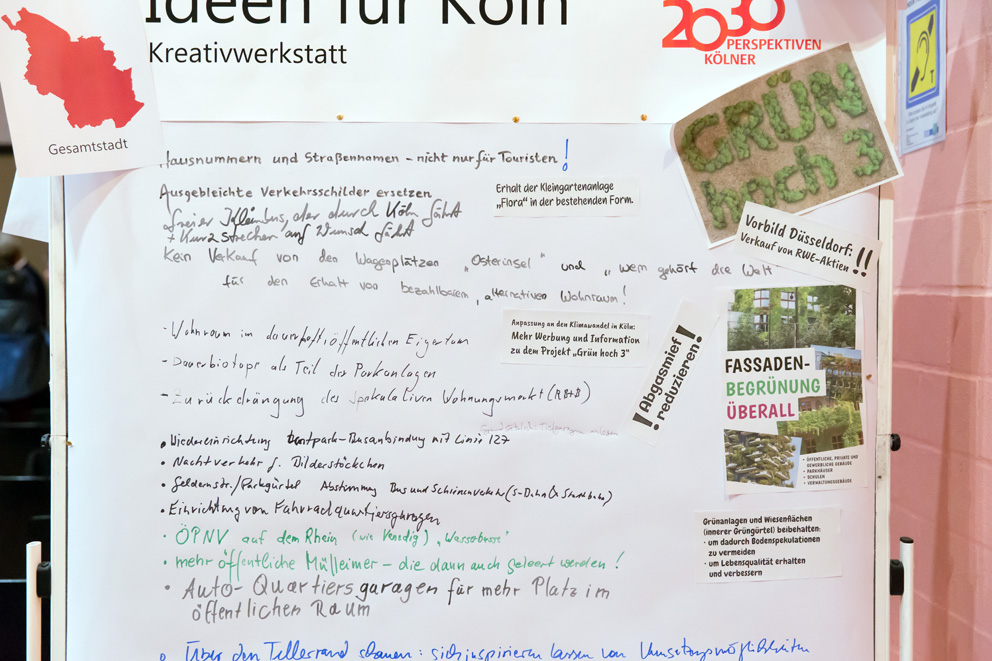 Ideen für Köln
Kreativwerkstatt
2030
PERSPEKTIVEN
KÖLNER
Gesamtstadt
Hausnummern und Straßennamen - nicht nur für Touristen!
Ausgebleichte Verkehrsschilder ersetzen
freier Kleinbus, der durch Köln fährt
+ Kurzstrecken auf Wunsch fährt
Kein Verkauf von den Wagenplätzen "Osterinsel" und "wem gehört die Welt"
für den Erhalt von bezahlbarem, alternativen Wohnraum!
- Wohnraum im dauerhaft öffentlichen Eigentum
- Dauerbiotope als Teil der Parkanlagen
- Zurückdrängung des spekulativen Wohnungsmarkt (RB+B)
• Wiedereinrichtung Buntpark-Busanbindung mit Linie 127
• Nachtverkehr f. Bilderstöckchen
• Geldernstr./Parkgürtel Abstimmung Bus und Schienenverkehr (S-Bahn & Stadtbahn)
• Einrichtung von Fahrradquartiersgaragen
• ÖPNV auf dem Rhein (wie Venedig) "Wasserbusse"
• mehr öffentliche Mülleimer - die dann auch geleert werden!
• Auto-Quartiersgaragen für mehr Platz im
öffentlichen Raum
• Über den Tellerrand schauen: sich inspirieren lassen von Umsetzungsmöglichkeiten
Erhalt der Kleingartenanlage
„Flora“ in der bestehenden Form.
Anpassung an den Klimawandel in Köln:
Mehr Werbung und Information
zu dem Projekt „Grün hoch 3“
! Abgasmief
reduzieren !
GRÜN
hoch 3
Vorbild Düsseldorf:
Verkauf von RWE-Aktien !!
FASSADEN-
BEGRÜNUNG
ÜBERALL
• ÖFFENTLICHE, PRIVATE UND
GEWERBLICHE GEBÄUDE
• PARKHÄUSER
• SCHULEN
• VERWALTUNGSGEBÄUDE
Grünanlagen und Wiesenflächen
(innerer Grüngürtel) beibehalten:
• um dadurch Bodenspekulationen
zu vermeiden
• um Lebensqualität erhalten
und verbessern